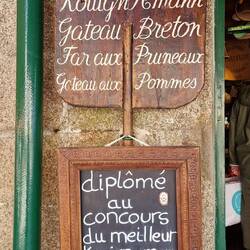 Kouign Amann
Gateau Breton
Far aux Pruneaux
Gateau aux Pommes
diplômé
au
concours
du meilleur